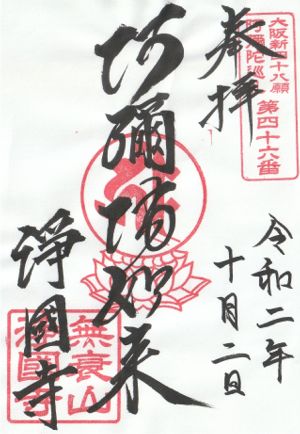 大阪新四十八願
阿彌陀巡
第四十六番
奉拝
阿彌陀如来
令和二年
十月二日
浄國寺
無衰山
浄國寺